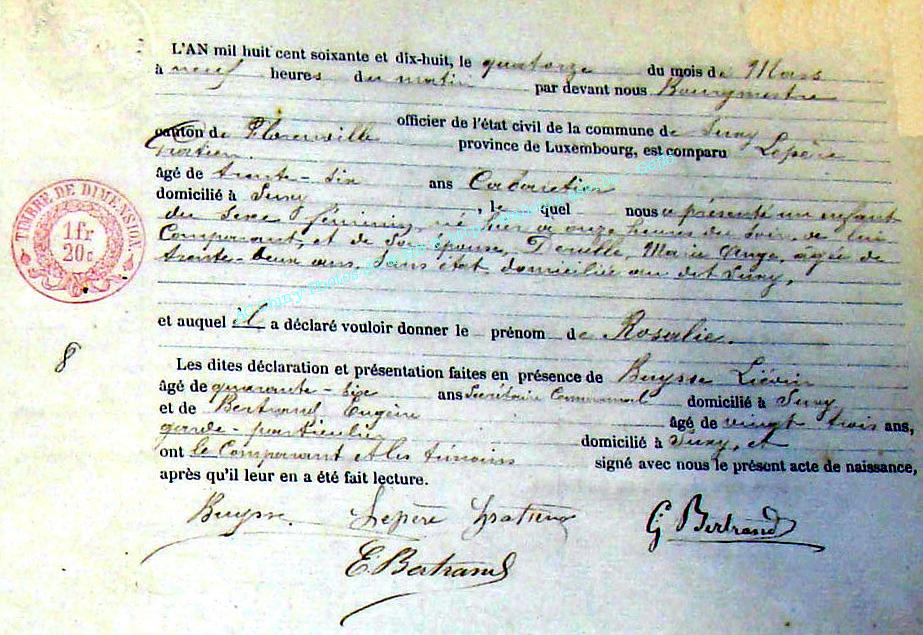 L'AN mil huit cent soixante et dix-huit, le quatorze du mois de Mars
à neuf heures du matin par devant nous Bourgmestre
officier de l'état civil de la commune de Suxy
canton de Florenville province de Luxembourg, est comparu Lepère
Gratien.
âgé de trente-six ans Cabaretier
domicilié à Suxy, lequel nous a présenté un enfant
du sexe féminin, né hier à onze heures du soir, de lui
Comparant, et de son épouse, Marie Ange, âgée de
trente-deux ans, sans état domiciliée au dit Suxy,
et auquel il a déclaré vouloir donner le prénom de Rosalie.
Les dites déclaration et présentation faites en présence de Buysse Liévin
âgé de quarante-six ans Secrétaire Communal domicilié à Suxy
et de Bertrand Eugène âgé de vingt trois ans,
garde-particulier domicilié à Suxy, et
ont le Comparant et les témoins signé avec nous le présent acte de naissance,
après qu'il leur en a été fait lecture.
Buysse. Lepère Gratien G Bertrand
E. Bertrand
TIMBRE DE DIMENSION.
1 fr
20 c
8